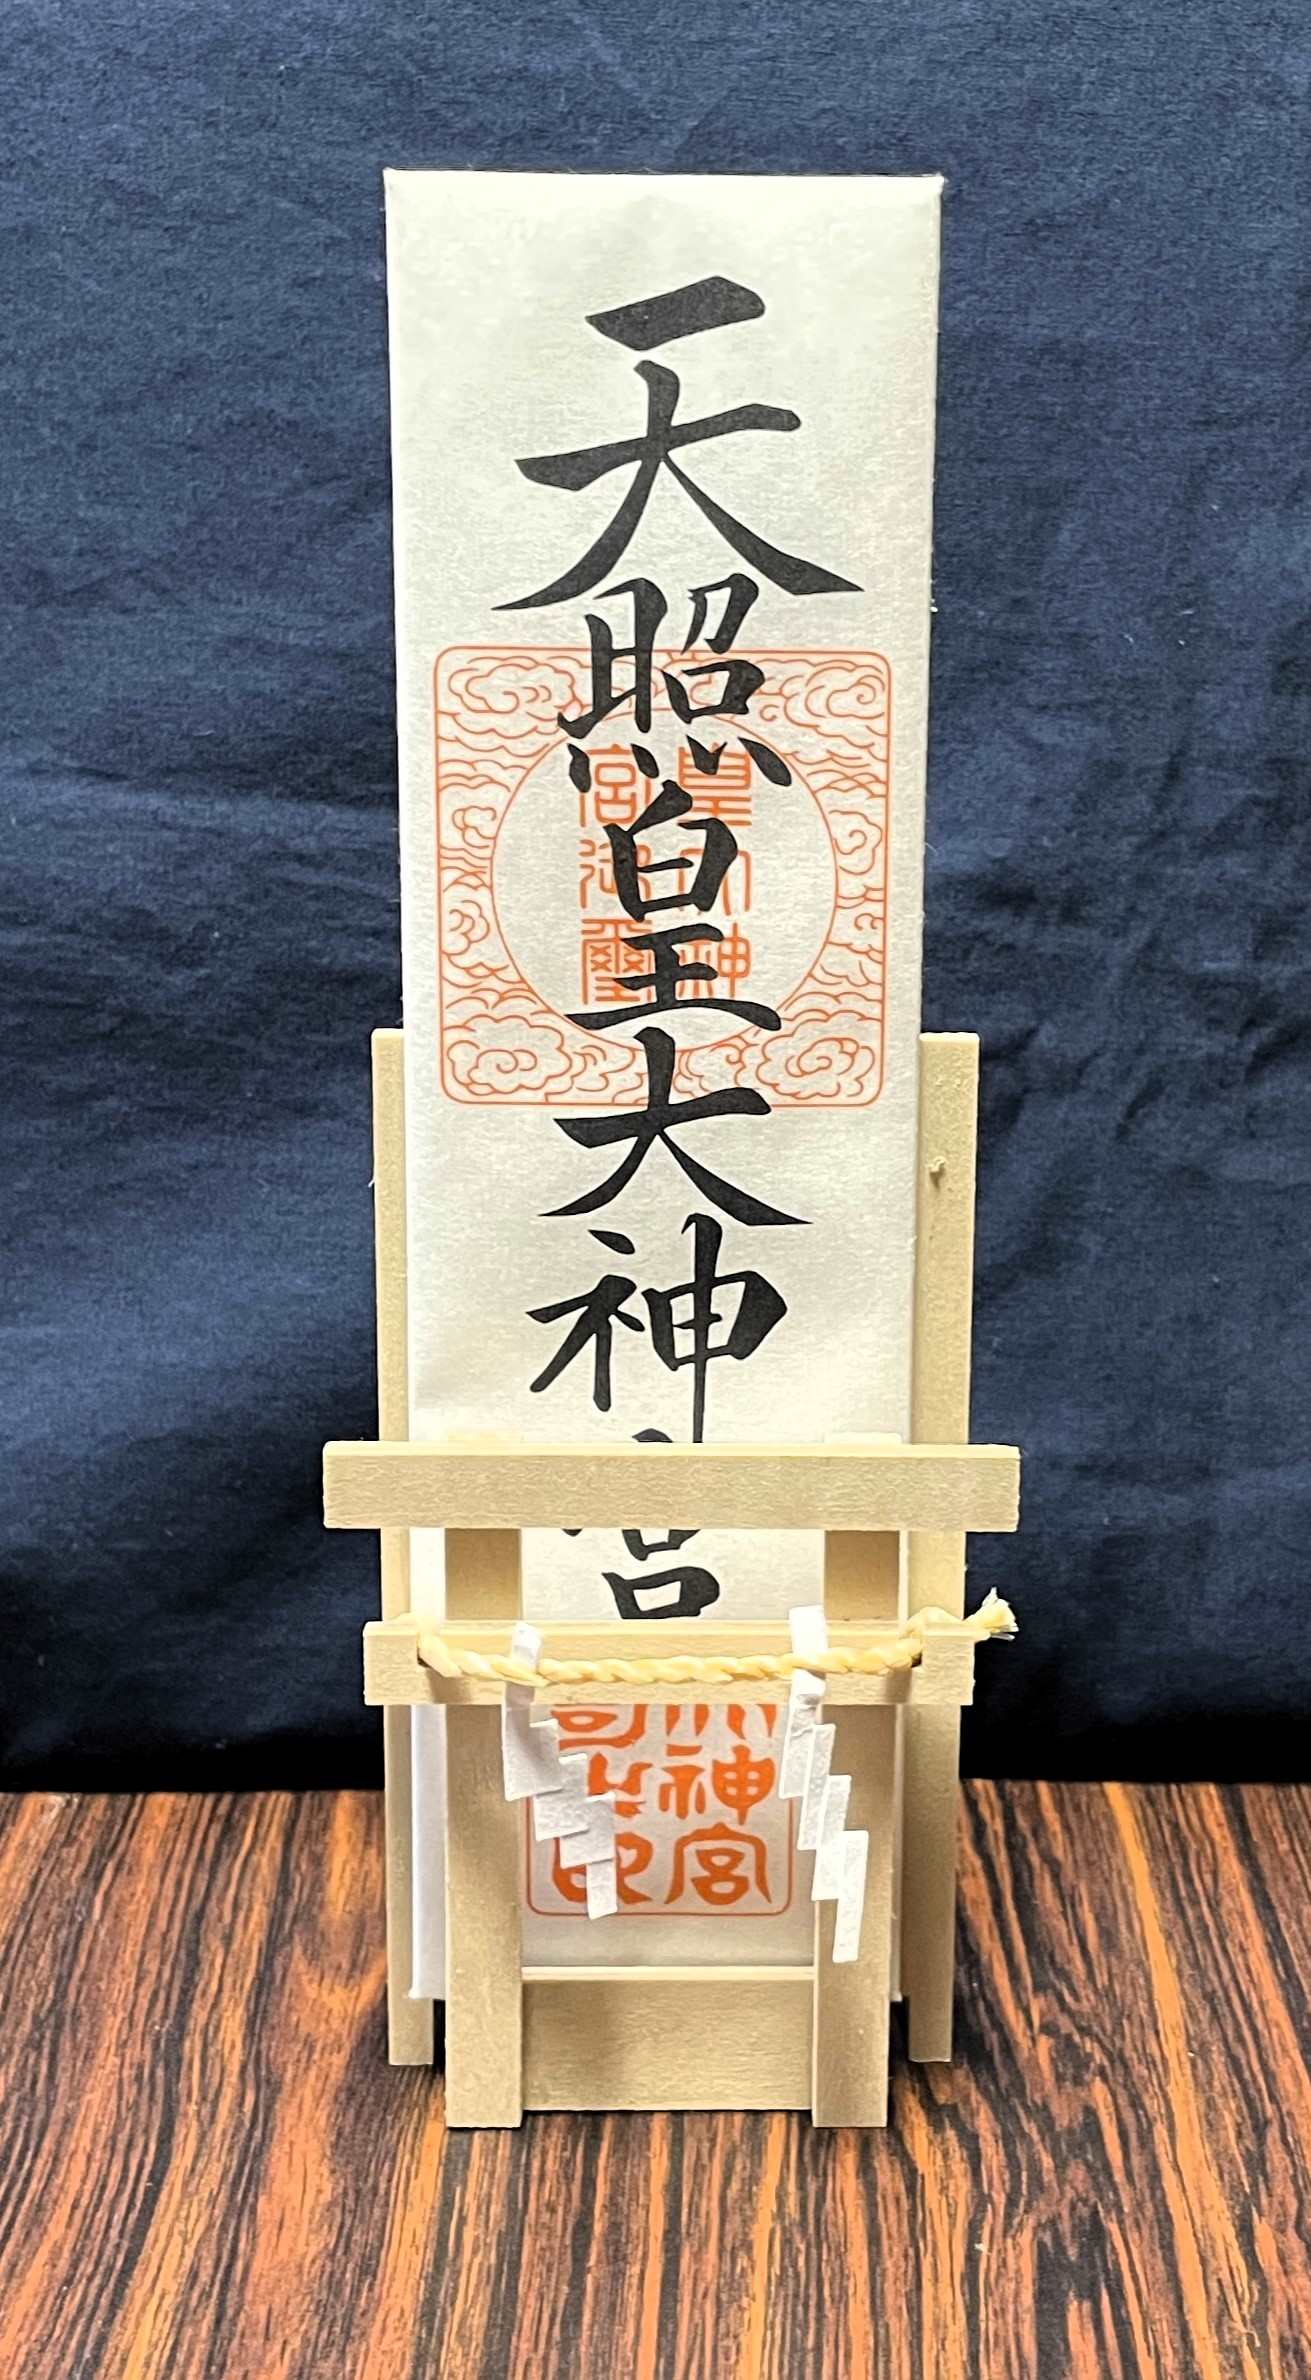 天照皇大神宮
皇大神宮御璽
神宮